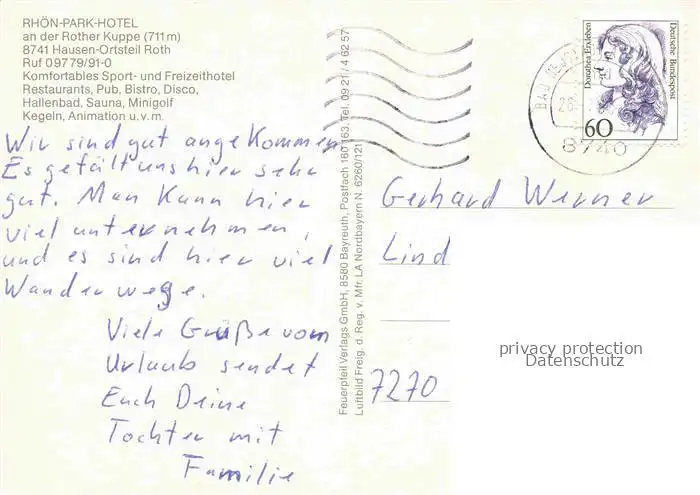 RHÖN-PARK-HOTEL
an der Rother Kuppe (711 m)
8741 Hausen-Ortsteil Roth
Ruf 0 97 79/91-0
Komfortables Sport- und Freizeithotel
Restaurants, Pub, Bistro, Disco,
Hallenbad, Sauna, Minigolf
Kegeln, Animation u.v.m.
Wir sind gut angekommen
Es gefält uns hier sehr
gut. Man kann hier
viel unternehmen,
und es sind hier viel
Wanderwege.
Viele Grüße vom
Urlaub sendet
Euch Deine
Tochter mit
Familie
Feuerpfeil Verlags GmbH, 8580 Bayreuth, Postfach 160163, Tel. 09 21 / 4 62 57
Luftbild Freig. d. Reg. v. Mfr. LA Nordbayern N. 6260/121
Dorothea Erxleben
Deutsche Bundespost
60
BAD
8740
Gerhard Werner
Lind
privacy protection
Datenschutz
7270